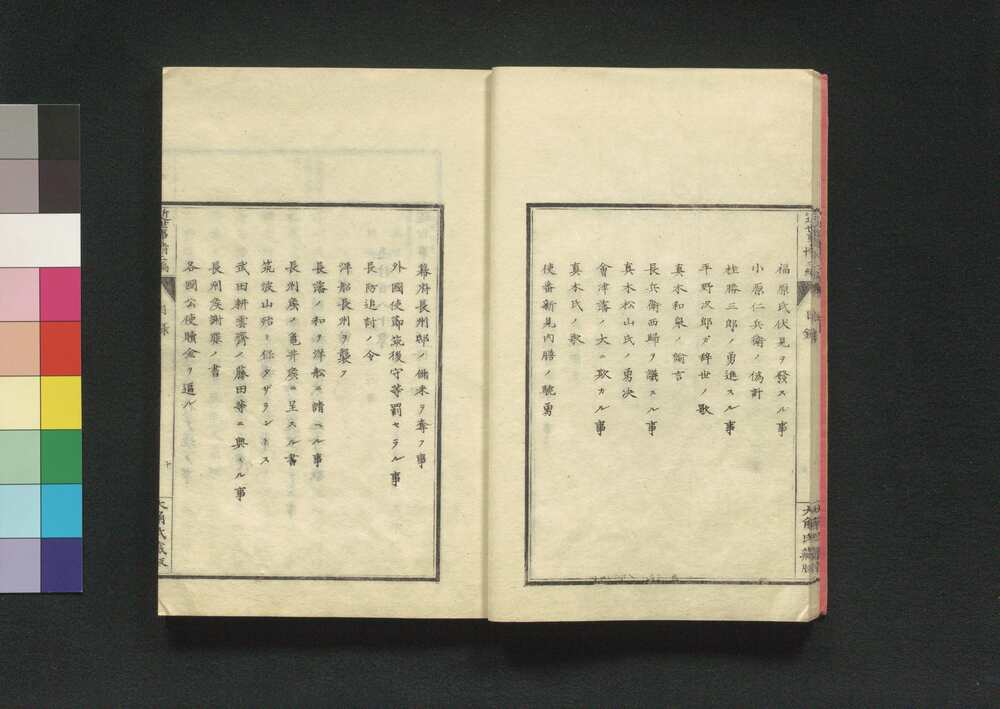 福原氏伏見ヲ發スル事
小原仁兵衛ノ偽計
桂勝三郎ノ勇進スル事
平野次郎ガ辞世ノ歌
真木和泉ノ諭言
長兵衛西歸ヲ議スル事
真木松山氏ノ勇决
會津藩ノ大ニ欺カル事
真木氏ノ歌
使番新見内膳ノ驍勇
幕府長州邸ノ備米ヲ奪フ事
外國使節筑後守等罰セラル事
長防追討ノ令
洋船長州ヲ襲フ
長藩ノ和ヲ洋舩ニ請ヘル事
長州矦ノ亀井矦ニ呈スル書
筑波山賊ヲ保タザランホス
武田耕雲齊ノ藤田等ニ與スル事
長州矦謝罪ノ書
各國公使贖金ヲ逼ル